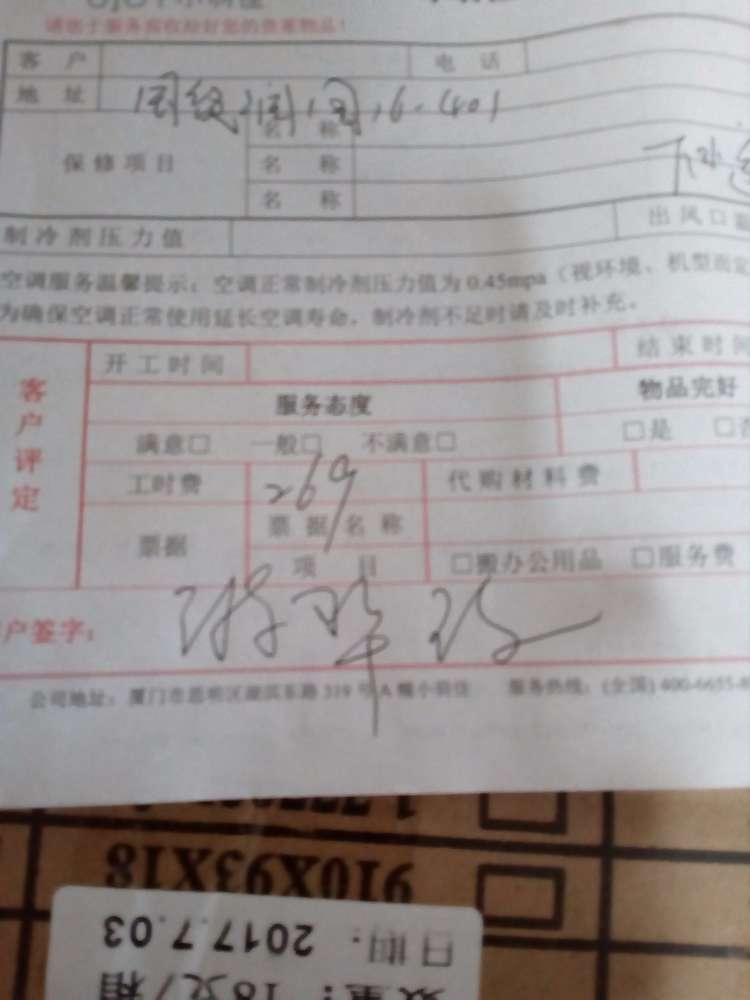 请恪于服务前收好您的贵重物品！
客 户 电 话
地 址 6.401
保修项目 名 称
名 称
名 称
制冷剂压力值 出风口温
空调服务温馨提示：空调正常制冷剂压力值为 0.45mpa（视环境、机型而定
为确保空调正常使用延长空调寿命，制冷剂不足时请及时补充。
客户评定
开工时间 结束时间
服务态度 物品完好
满意□ 一般□ 不满意□ □是 □否
工时费 269 代购材料费
票据 票据名称
项 目 □搬办公用品 □服务费
户签字：
公司地址：厦门市思明区湖滨东路 319 号 A 幢小羽佳 服务热线：(全国) 400-6655-8
910X93X18
日期：2017.7.03
数量：18支/箱